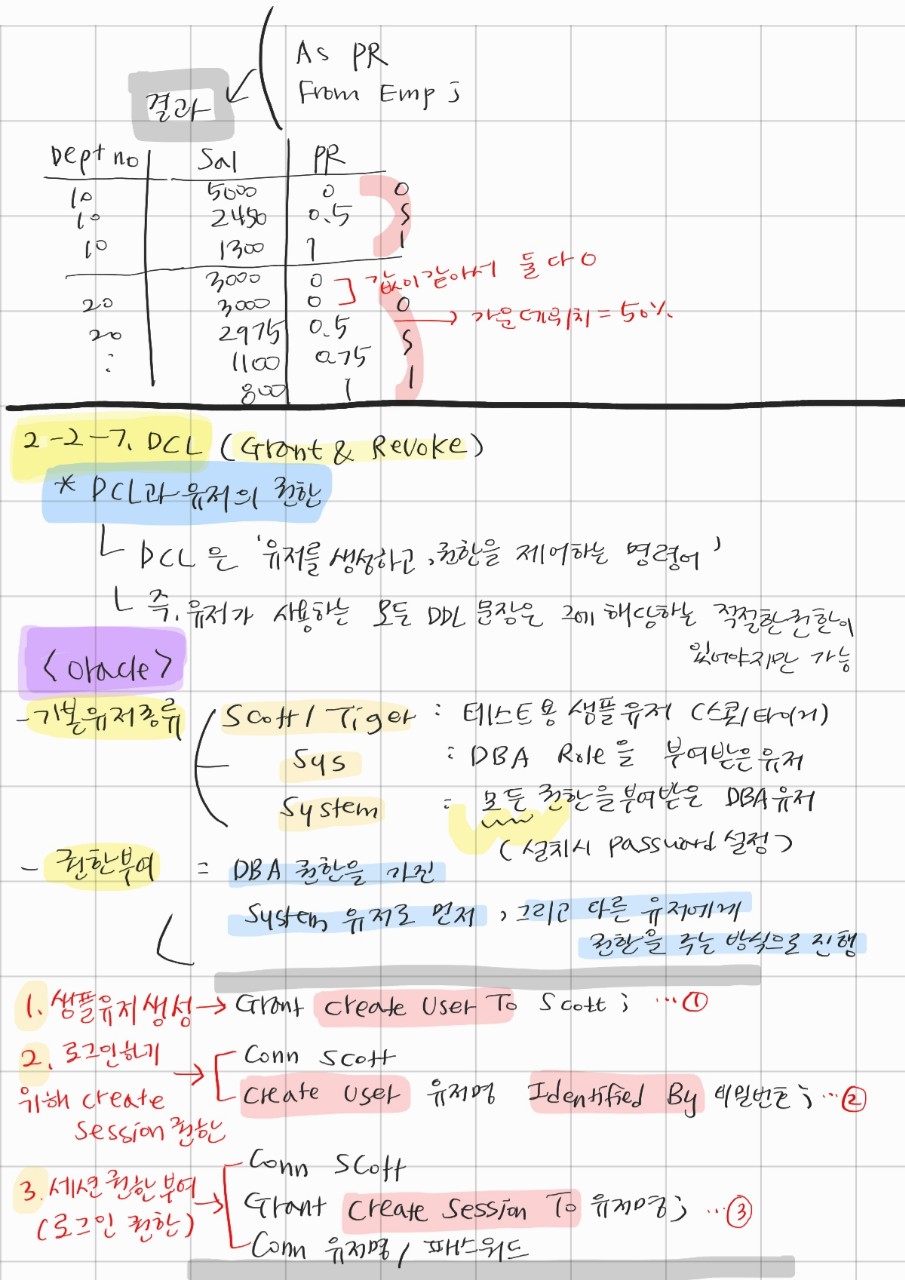 As PR
From Emp ;
결과
Dept no Sal PR
10 5000 0 0
10 2450 0.5 5
10 1300 1 1
3000 0 값이같아서 둘 다 0
20 3000 0 0
20 2975 0.5 → 가운데위치 = 50%
: 1100 0.75 5
800 1 1
2-2-7. DCL (Grant & Revoke)
* DCL과 유저의 권한
DCL은 '유저를 생성하고, 권한을 제어하는 명령어'
즉, 유저가 사용하는 모든 DDL 문장은 그에 해당하는 적절한 권한이
있어야지만 가능
<Oracle>
- 기본유저종류 Scott / Tiger : 테스트용 샘플유저 (스콧/타이거)
Sys : DBA Role을 부여받은 유저
System : 모든 권한을 부여받은 DBA 유저
(설치시 password 설정)
- 권한부여 = DBA 권한을 가진
System 유저로 먼저, 그리고 다른 유저에게
권한을 주는 방식으로 진행
1. 샘플유저생성 → Grant Create User To Scott ; ...①
2. 로그인하기 → Conn Scott
위해 create Create User 유저명 Identified By 비밀번호; ...②
session 권한
Conn Scott
3. 세션 권한 부여 → Grant Create Session To 유저명; ...③
(로그인 권한)
Conn 유저명 / 패스워드